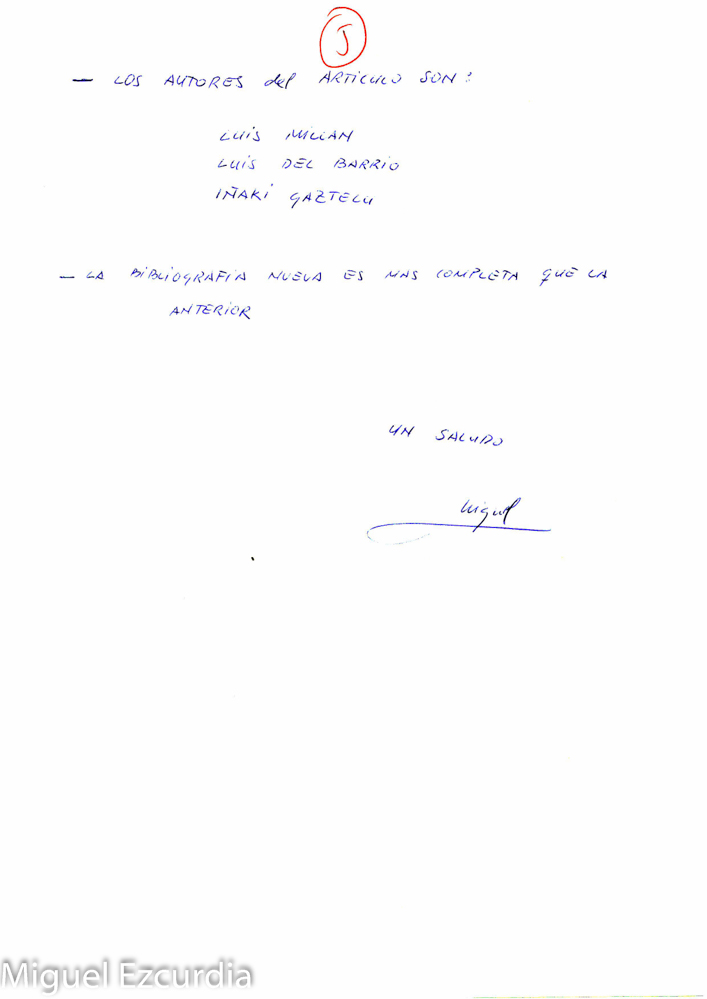 J
— LOS AUTORES del ARTICULO SON:
LUIS MILLAN
LUIS DEL BARRIO
IÑAKI GAZTELU
— LA BIBLIOGRAFIA NUEVA ES MAS COMPLETA QUE LA
ANTERIOR
UN SALUDO
Miguel
Miguel Ezcurdia